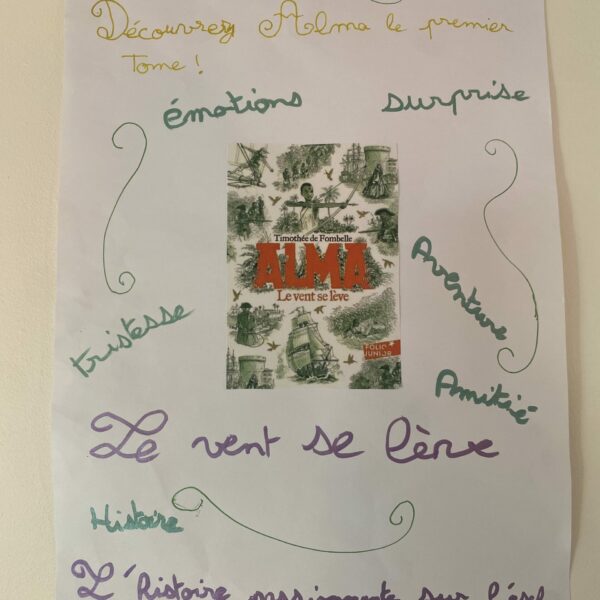 Découvrez Alma le premier
Tome !
émotions surprise
Timothée de Fombelle
ALMA
Le vent se lève
FOLIO
JUNIOR
Aventure
tristesse
Amitié
Le vent se lève
Histoire
L'histoire passionnante sur l'escl